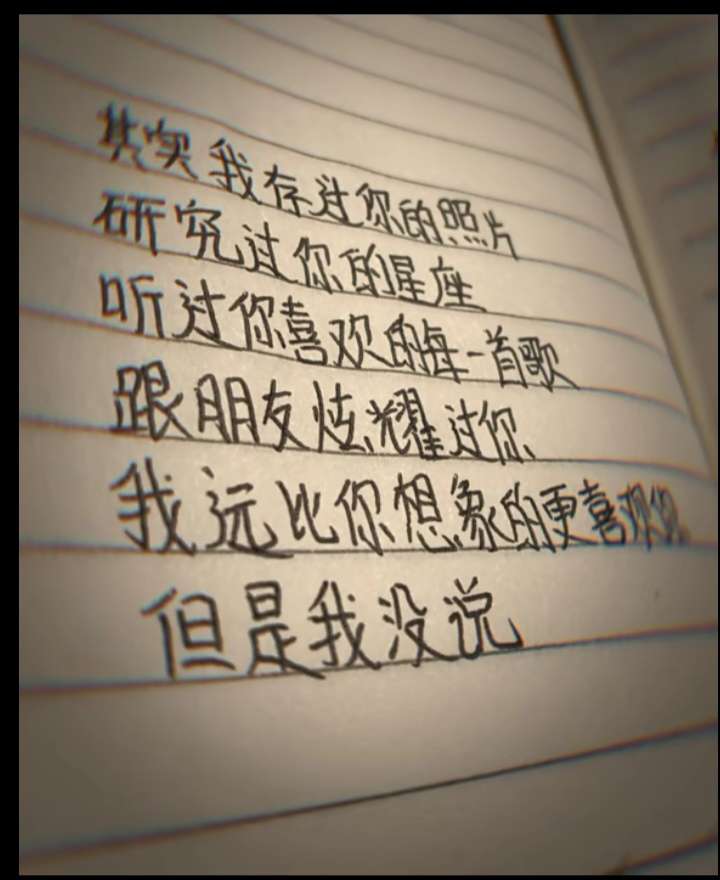 其实我存过你的照片
研究过你的星座
听过你喜欢的每一首歌
跟朋友炫耀过你
我远比你想象的更喜欢你
但是我没说